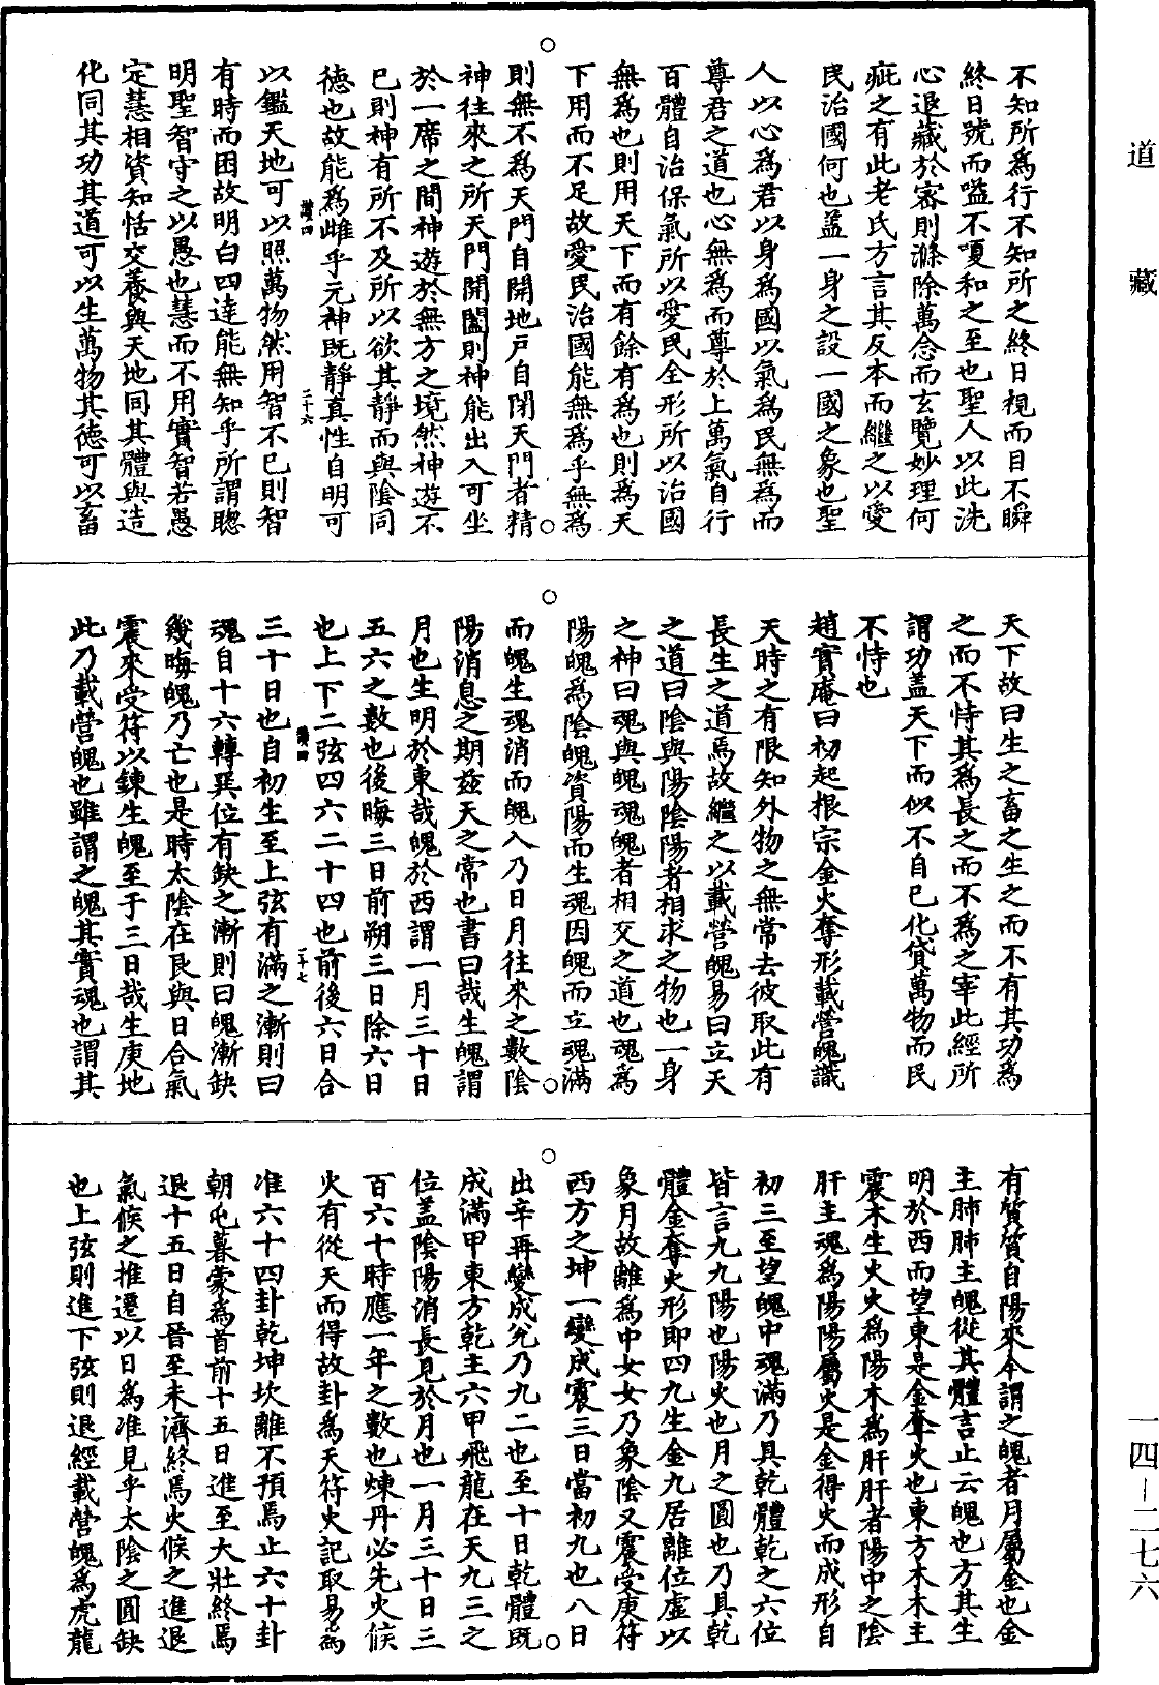 道藏
不知所為行不知所之終日視而目不瞬
終日號而嗌不嗄和之至也聖人以此洗
心退藏於密則滌除萬念而玄覽妙理何
疵之有此老氏方言其反本而繼之以愛
民治國何也蓋一身之設一國之象也聖
人以心為君以身為國以氣為民無為而
尊君之道也心無為而尊於上萬氣自行
百體自治保氣所以愛民全形所以治國
無為也則用天下而有餘有為也則為天
下用而不足故愛民治國能無為乎無為
則無不為天門自開地戶自閉天門者精
神往來之所天門開闔則神能出入可坐
於一席之間神遊於無方之境然神遊不
已則神有所不及所以欲其靜而與陰同
德也故能為雌乎元神既靜真性自明可
讚四
二十六
以鑑天地可以照萬物然用智不已則智
有時而困故明白四達能無知乎所謂聰
明聖智守之以愚也慧而不用實智若愚
定慧相資知恬交養與天地同其體與造
化同其功其道可以生萬物其德可以畜
天下故曰生之畜之生之而不有其功為
之而不恃其為長之而不為之宰此經所
謂功蓋天下而似不自已化貸萬物而民
不恃也
趙實庵曰初起根宗金火奪形載營魄識
天時之有限知外物之無常去彼取此有
長生之道焉故繼之以載營魄易曰立天
之道曰陰與陽陰陽者相求之物也一身
之神曰魂與魄魂魄者相交之道也魂為
陽魄為陰魄資陽而生魂因魄而立魂滿
而魄生魂消而魄入乃日月往來之數陰
陽消息之期茲天之常也書曰哉生魄謂
月也生明於東哉魄於西謂一月三十日
五六之數也後晦三日前朔三日除六日
也上下二弦四六二十四也前後六日合
讚四
二十七
三十日也自初生至上弦有滿之漸則曰
魂自十六轉巽位有缺之漸則曰魄漸缺
幾晦魄乃亡也是時太陰在艮與日合氣
震來受符以鍊生魄至于三日哉生庚地
此乃載營魄也雖謂之魄其實魂也謂其
有質質自陽來今謂之魄者月屬金也金
主肺肺主魄從其體言止云魄也方其生
明於西而望東是金奪火也東方木木主
震木生火火為陽木為肝肝者陽中之陰
肝主魂為陽陽屬火是金得火而成形自
初三至望魄中魂滿乃具乾體乾之六位
皆言九九陽也陽火也月之圓也乃具乾
體金奪火形即四九生金九居離位虛以
象月故離為中女女乃象陰又震受庚符
西方之坤一變成震三日當初九也八日
出辛再變成兌乃九二也至十日乾體既
成滿甲東方乾主六甲飛龍在天九三之
位蓋陰陽消長見於月也一月三十日三
百六十時應一年之數也煉丹必先火候
火有從天而得故卦為天符火記取易為
准六十四卦乾坤坎離不預焉止六十卦
朝屯暮蒙為首前十五日進至大壯終焉
退十五日自晉至未濟終焉火候之進退
氣候之推遷以日為准見乎太陰之圓缺
也上弦則進下弦則退經載營魄為虎龍
一四—二七六